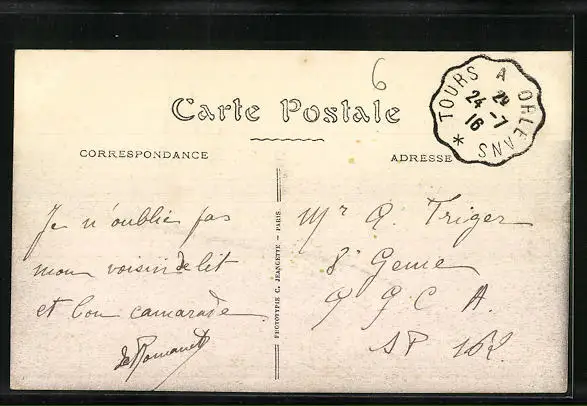 6
Carte Postale
TOURS A ORLEANS
24 -7
16
CORRESPONDANCE
ADRESSE
Je n'oublie pas
mon voisin de lit
et bon camarade
PHOTOTYPIE C. JEANGETTE - PARIS
Mr A. Triger
8e Genie
C A.
SP 162